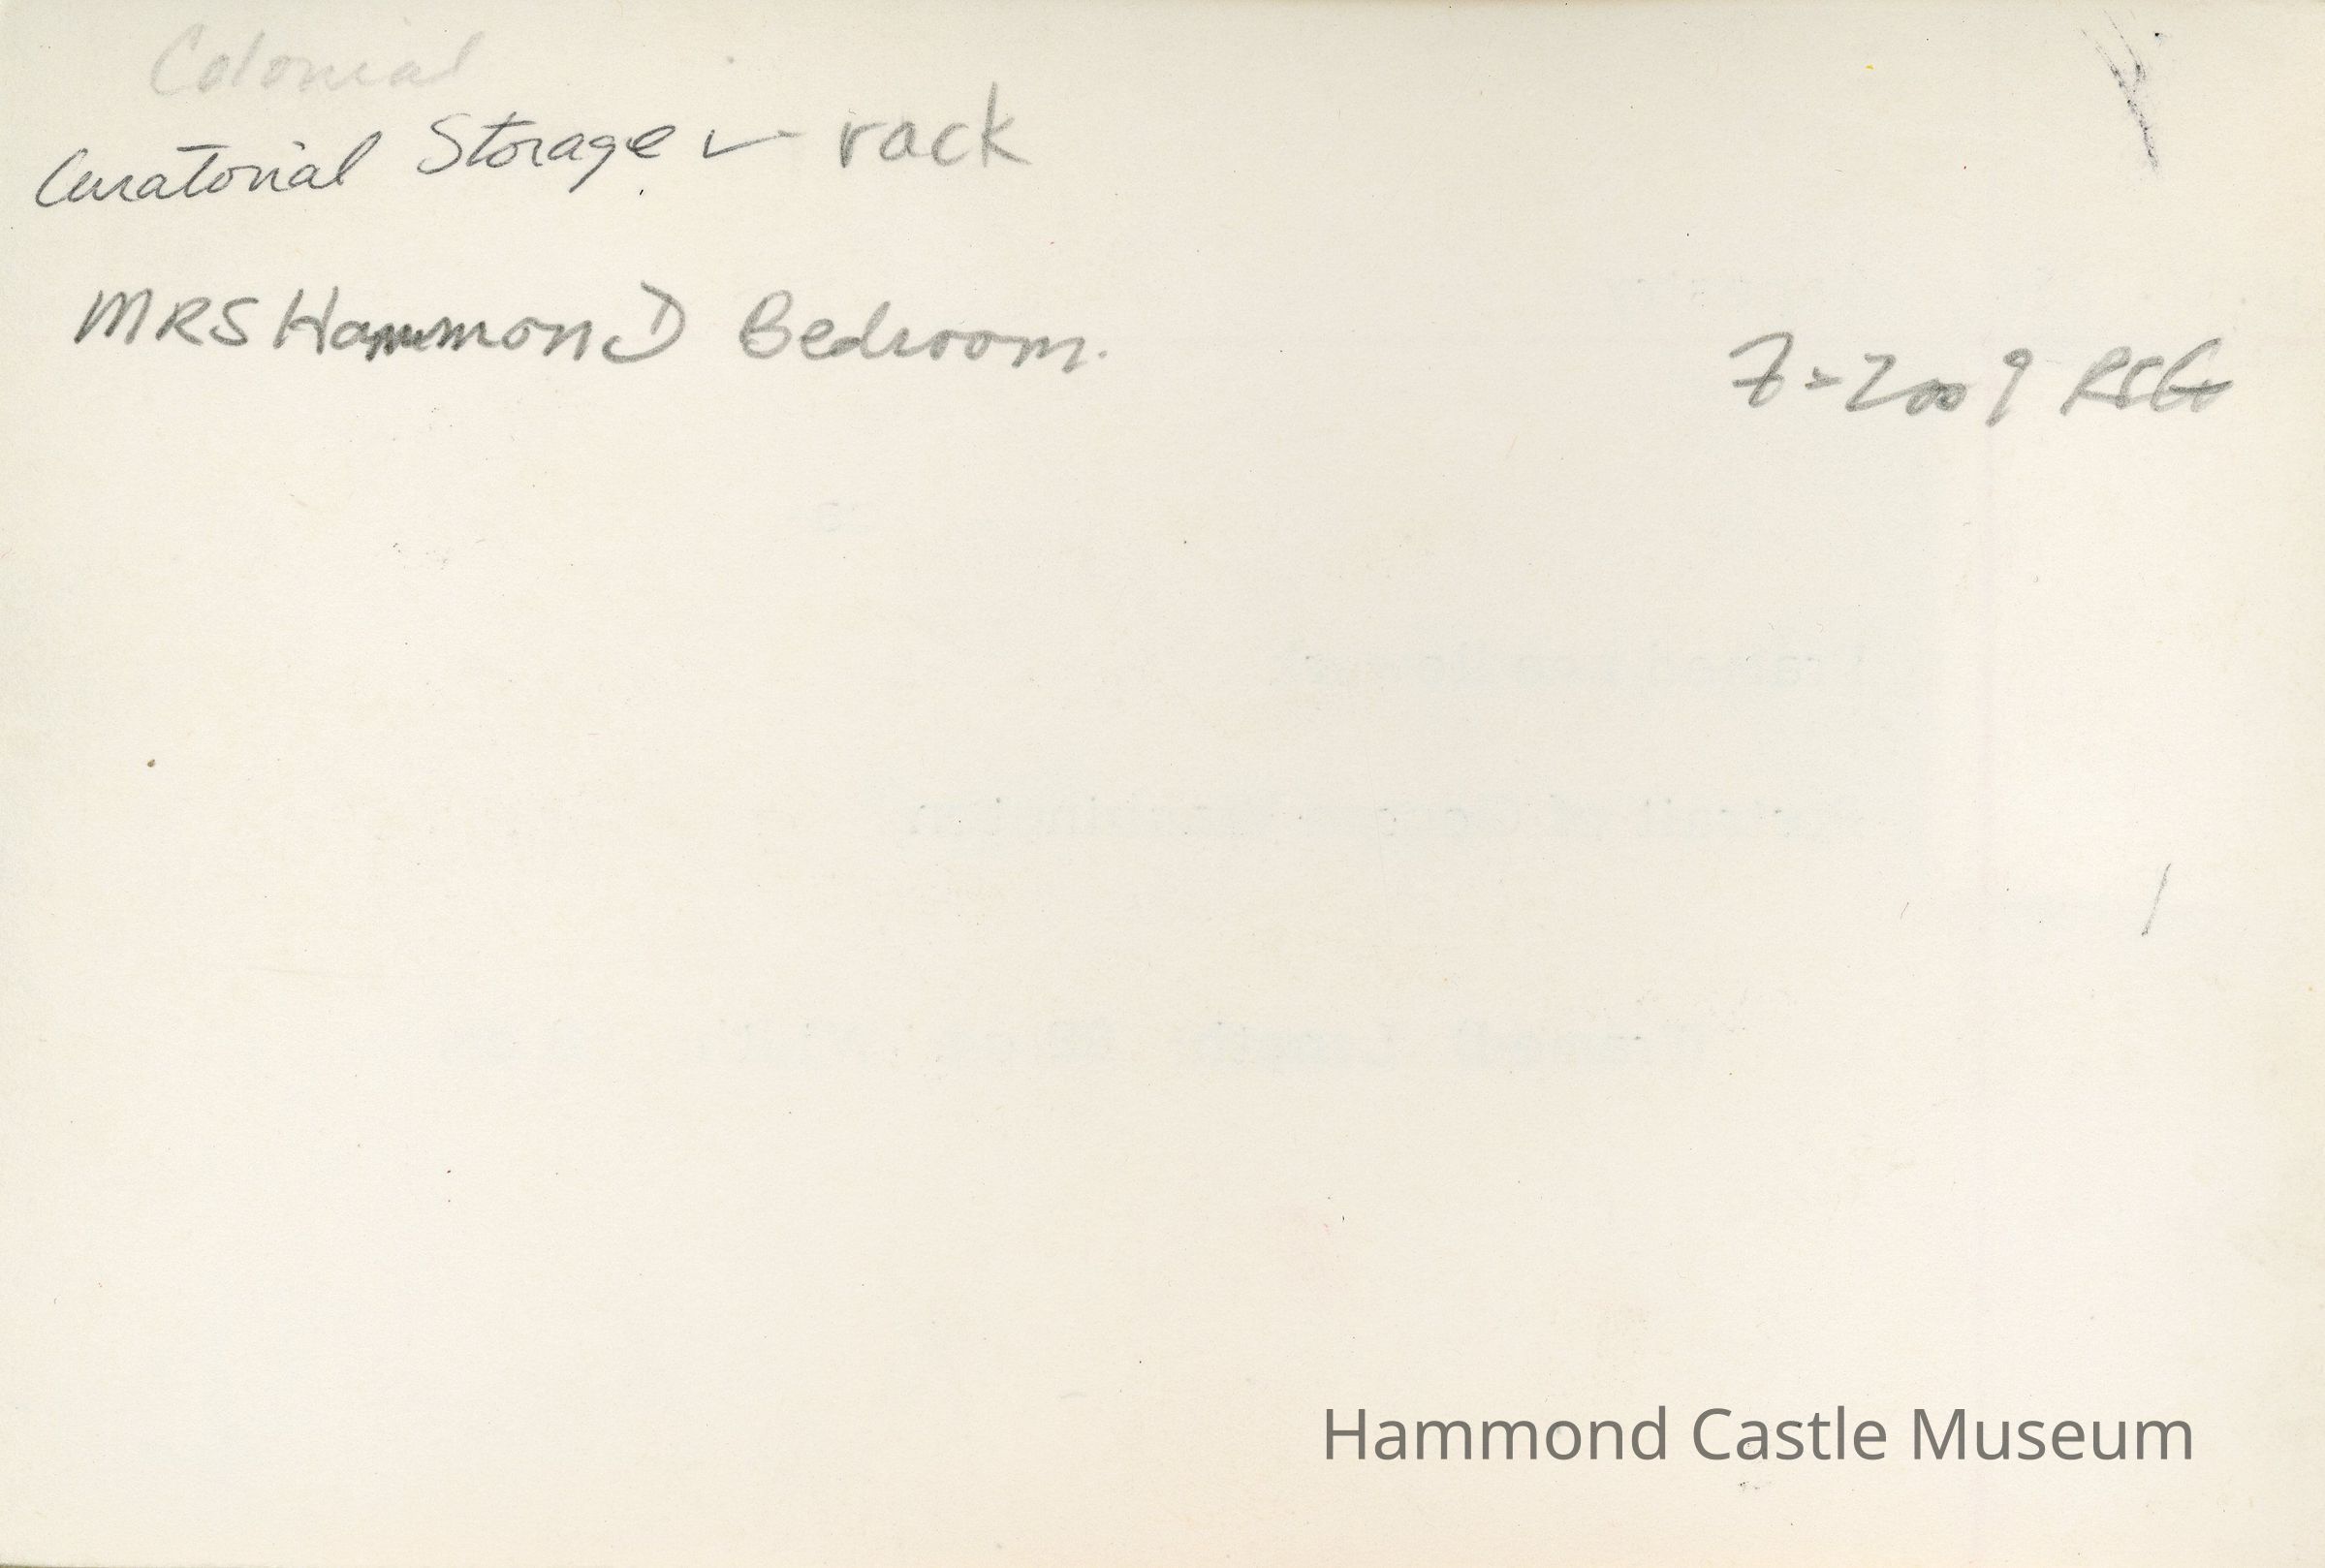 Colonial
Curatorial Storage ✓ rack
MRS HammonD Bedroom.
7-2009 RSG
Hammond Castle Museum